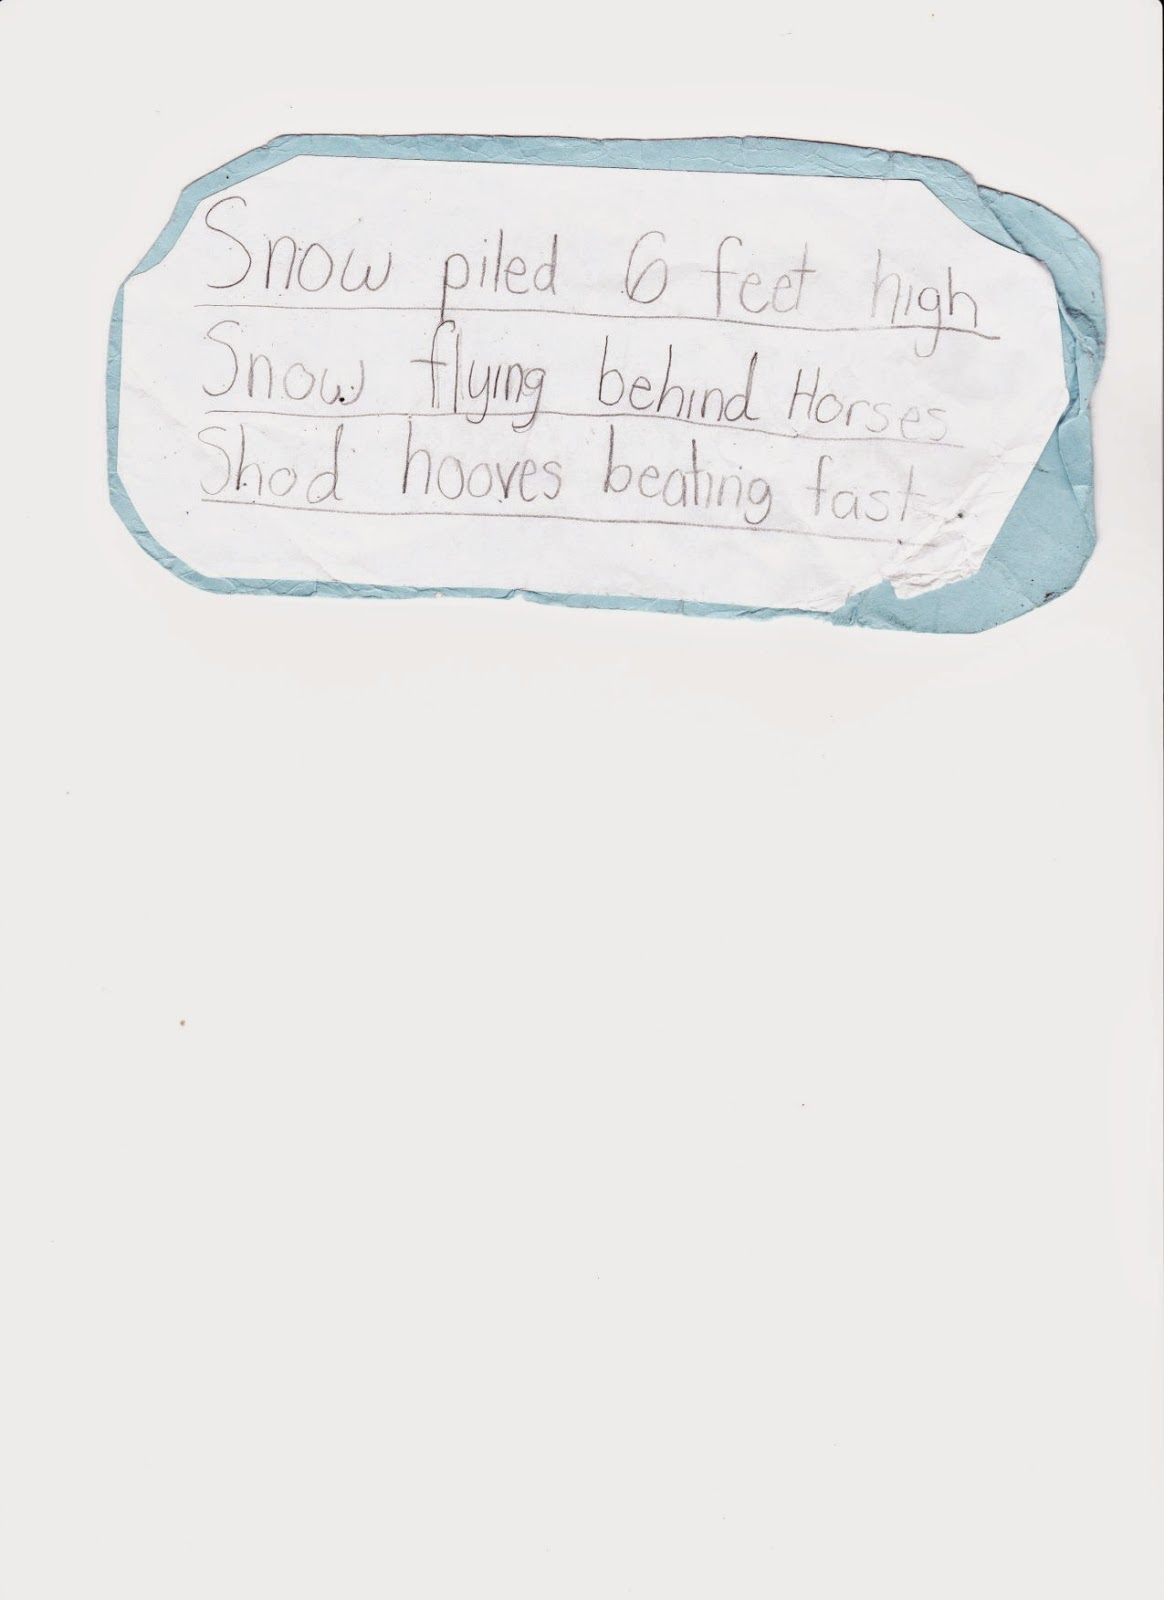 Snow piled 6 feet high
Snow flying behind Horses
Shod hooves beating fast.